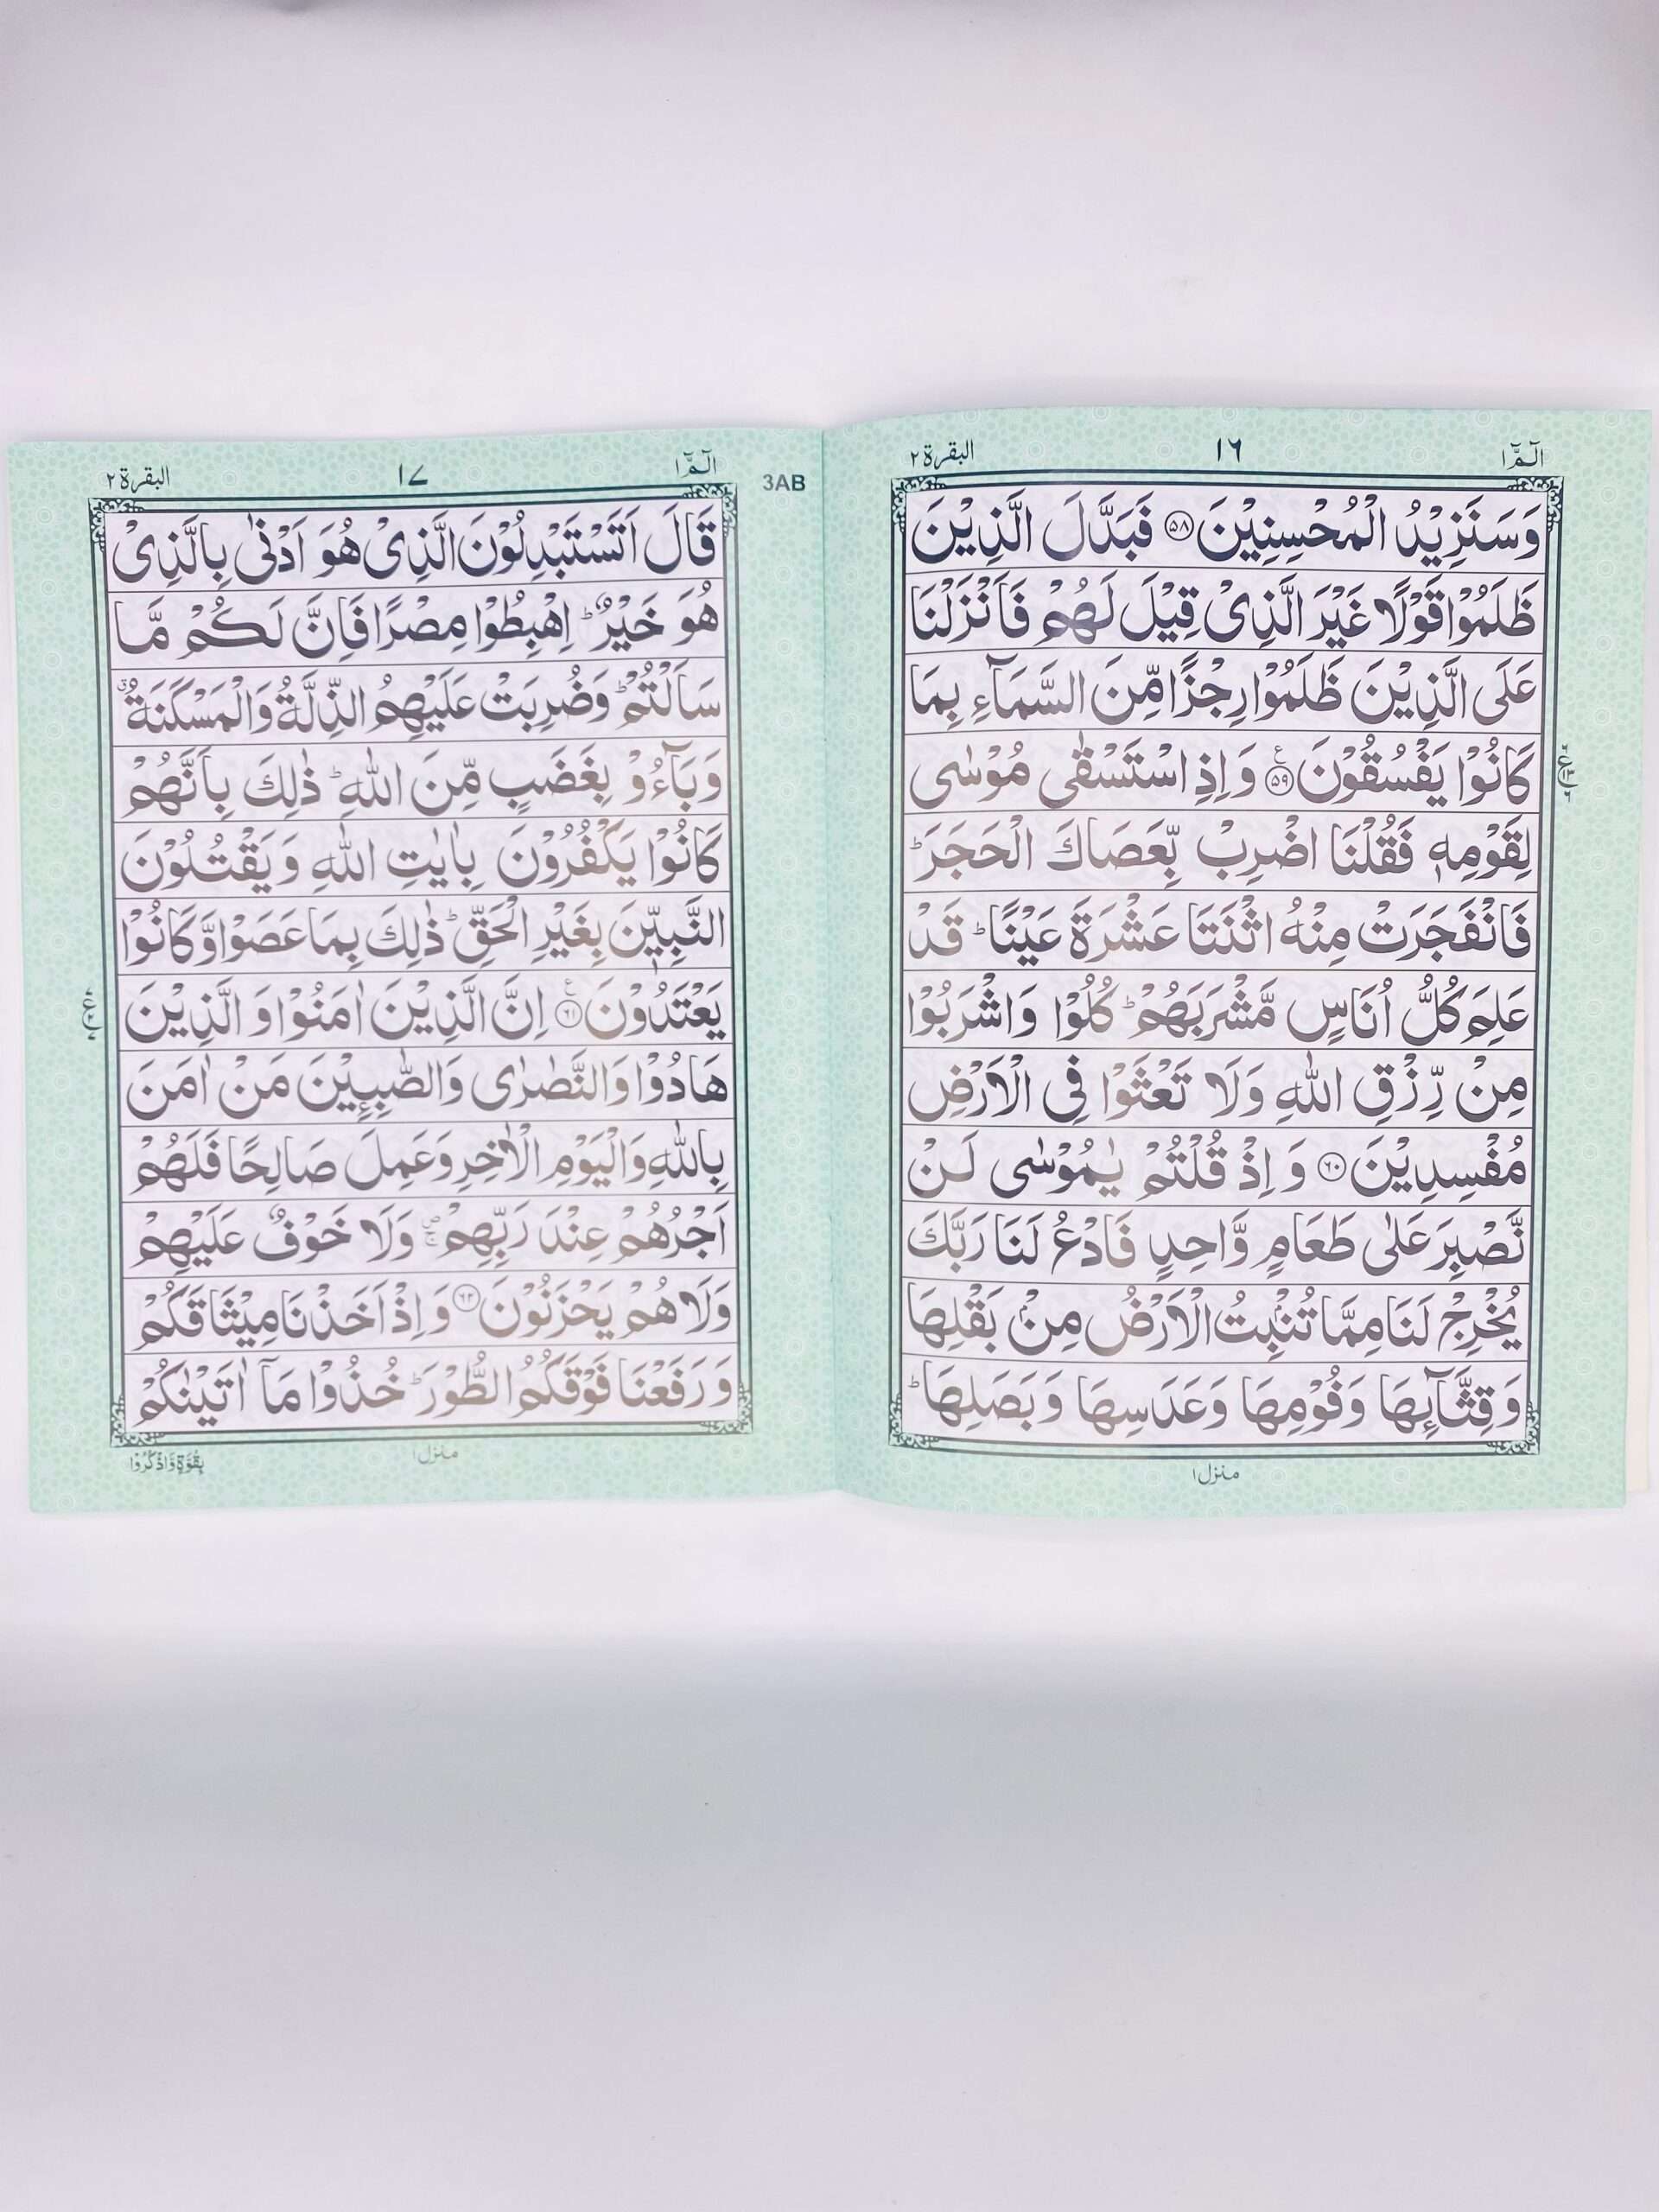 الٓمّٓ ١
١٦
البقرة ٢
وَسَنَزِيْدُ الْمُحْسِنِيْنَ ﴿٥٨﴾ فَبَدَّلَ الَّذِيْنَ
ظَلَمُوْا قَوْلًا غَيْرَ الَّذِيْ قِيْلَ لَهُمْ فَاَنْزَلْنَا
عَلَى الَّذِيْنَ ظَلَمُوْا رِجْزًا مِّنَ السَّمَآءِ بِمَا
كَانُوْا يَفْسُقُوْنَ ﴿٥٩﴾ ع وَاِذِ اسْتَسْقٰى مُوْسٰى
لِقَوْمِهٖ فَقُلْنَا اضْرِبْ بِّعَصَاكَ الْحَجَرَ ؕ
فَانْفَجَرَتْ مِنْهُ اثْنَتَا عَشْرَةَ عَيْنًا ؕ قَدْ
عَلِمَ كُلُّ اُنَاسٍ مَّشْرَبَهُمْ ؕ كُلُوْا وَاشْرَبُوْا
مِنْ رِّزْقِ اللّٰهِ وَلَا تَعْثَوْا فِى الْاَرْضِ
مُفْسِدِيْنَ ﴿٦٠﴾ وَ اِذْ قُلْتُمْ يٰمُوْسٰى لَنْ
نَّصْبِرَ عَلٰى طَعَامٍ وَّاحِدٍ فَادْعُ لَنَا رَبَّكَ
يُخْرِجْ لَنَا مِمَّا تُنْۢبِتُ الْاَرْضُ مِنْۢ بَقْلِهَا
وَقِثَّآئِهَا وَفُوْمِهَا وَعَدَسِهَا وَبَصَلِهَا ؕ
منزل ١
3AB
الٓمّٓ ١
١٧
البقرة ٢
قَالَ اَتَسْتَبْدِلُوْنَ الَّذِيْ هُوَ اَدْنٰى بِالَّذِيْ
هُوَ خَيْرٌ ؕ اِهْبِطُوْا مِصْرًا فَاِنَّ لَكُمْ مَّا
سَاَلْتُمْ ؕ وَضُرِبَتْ عَلَيْهِمُ الذِّلَّةُ وَالْمَسْكَنَةُ ۗ
وَبَآءُوْ بِغَضَبٍ مِّنَ اللّٰهِ ؕ ذٰلِكَ بِاَنَّهُمْ
كَانُوْا يَكْفُرُوْنَ بِاٰيٰتِ اللّٰهِ وَيَقْتُلُوْنَ
النَّبِيّٖنَ بِغَيْرِ الْحَقِّ ؕ ذٰلِكَ بِمَا عَصَوْا وَّكَانُوْا
يَعْتَدُوْنَ ﴿٦١﴾ ع اِنَّ الَّذِيْنَ اٰمَنُوْا وَ الَّذِيْنَ
هَادُوْا وَالنَّصٰرٰى وَالصّٰبِـِٕيْنَ مَنْ اٰمَنَ
بِاللّٰهِ وَالْيَوْمِ الْاٰخِرِ وَعَمِلَ صَالِحًا فَلَهُمْ
اَجْرُهُمْ عِنْدَ رَبِّهِمْ ۚ وَلَا خَوْفٌ عَلَيْهِمْ
وَلَا هُمْ يَحْزَنُوْنَ ﴿٦٢﴾ وَ اِذْ اَخَذْنَا مِيْثَاقَكُمْ
وَرَفَعْنَا فَوْقَكُمُ الطُّوْرَ ؕ خُذُوْا مَآ اٰتَيْنٰكُمْ
منزل ١
بِقُوَّةٍ وَّاذْكُرُوْا